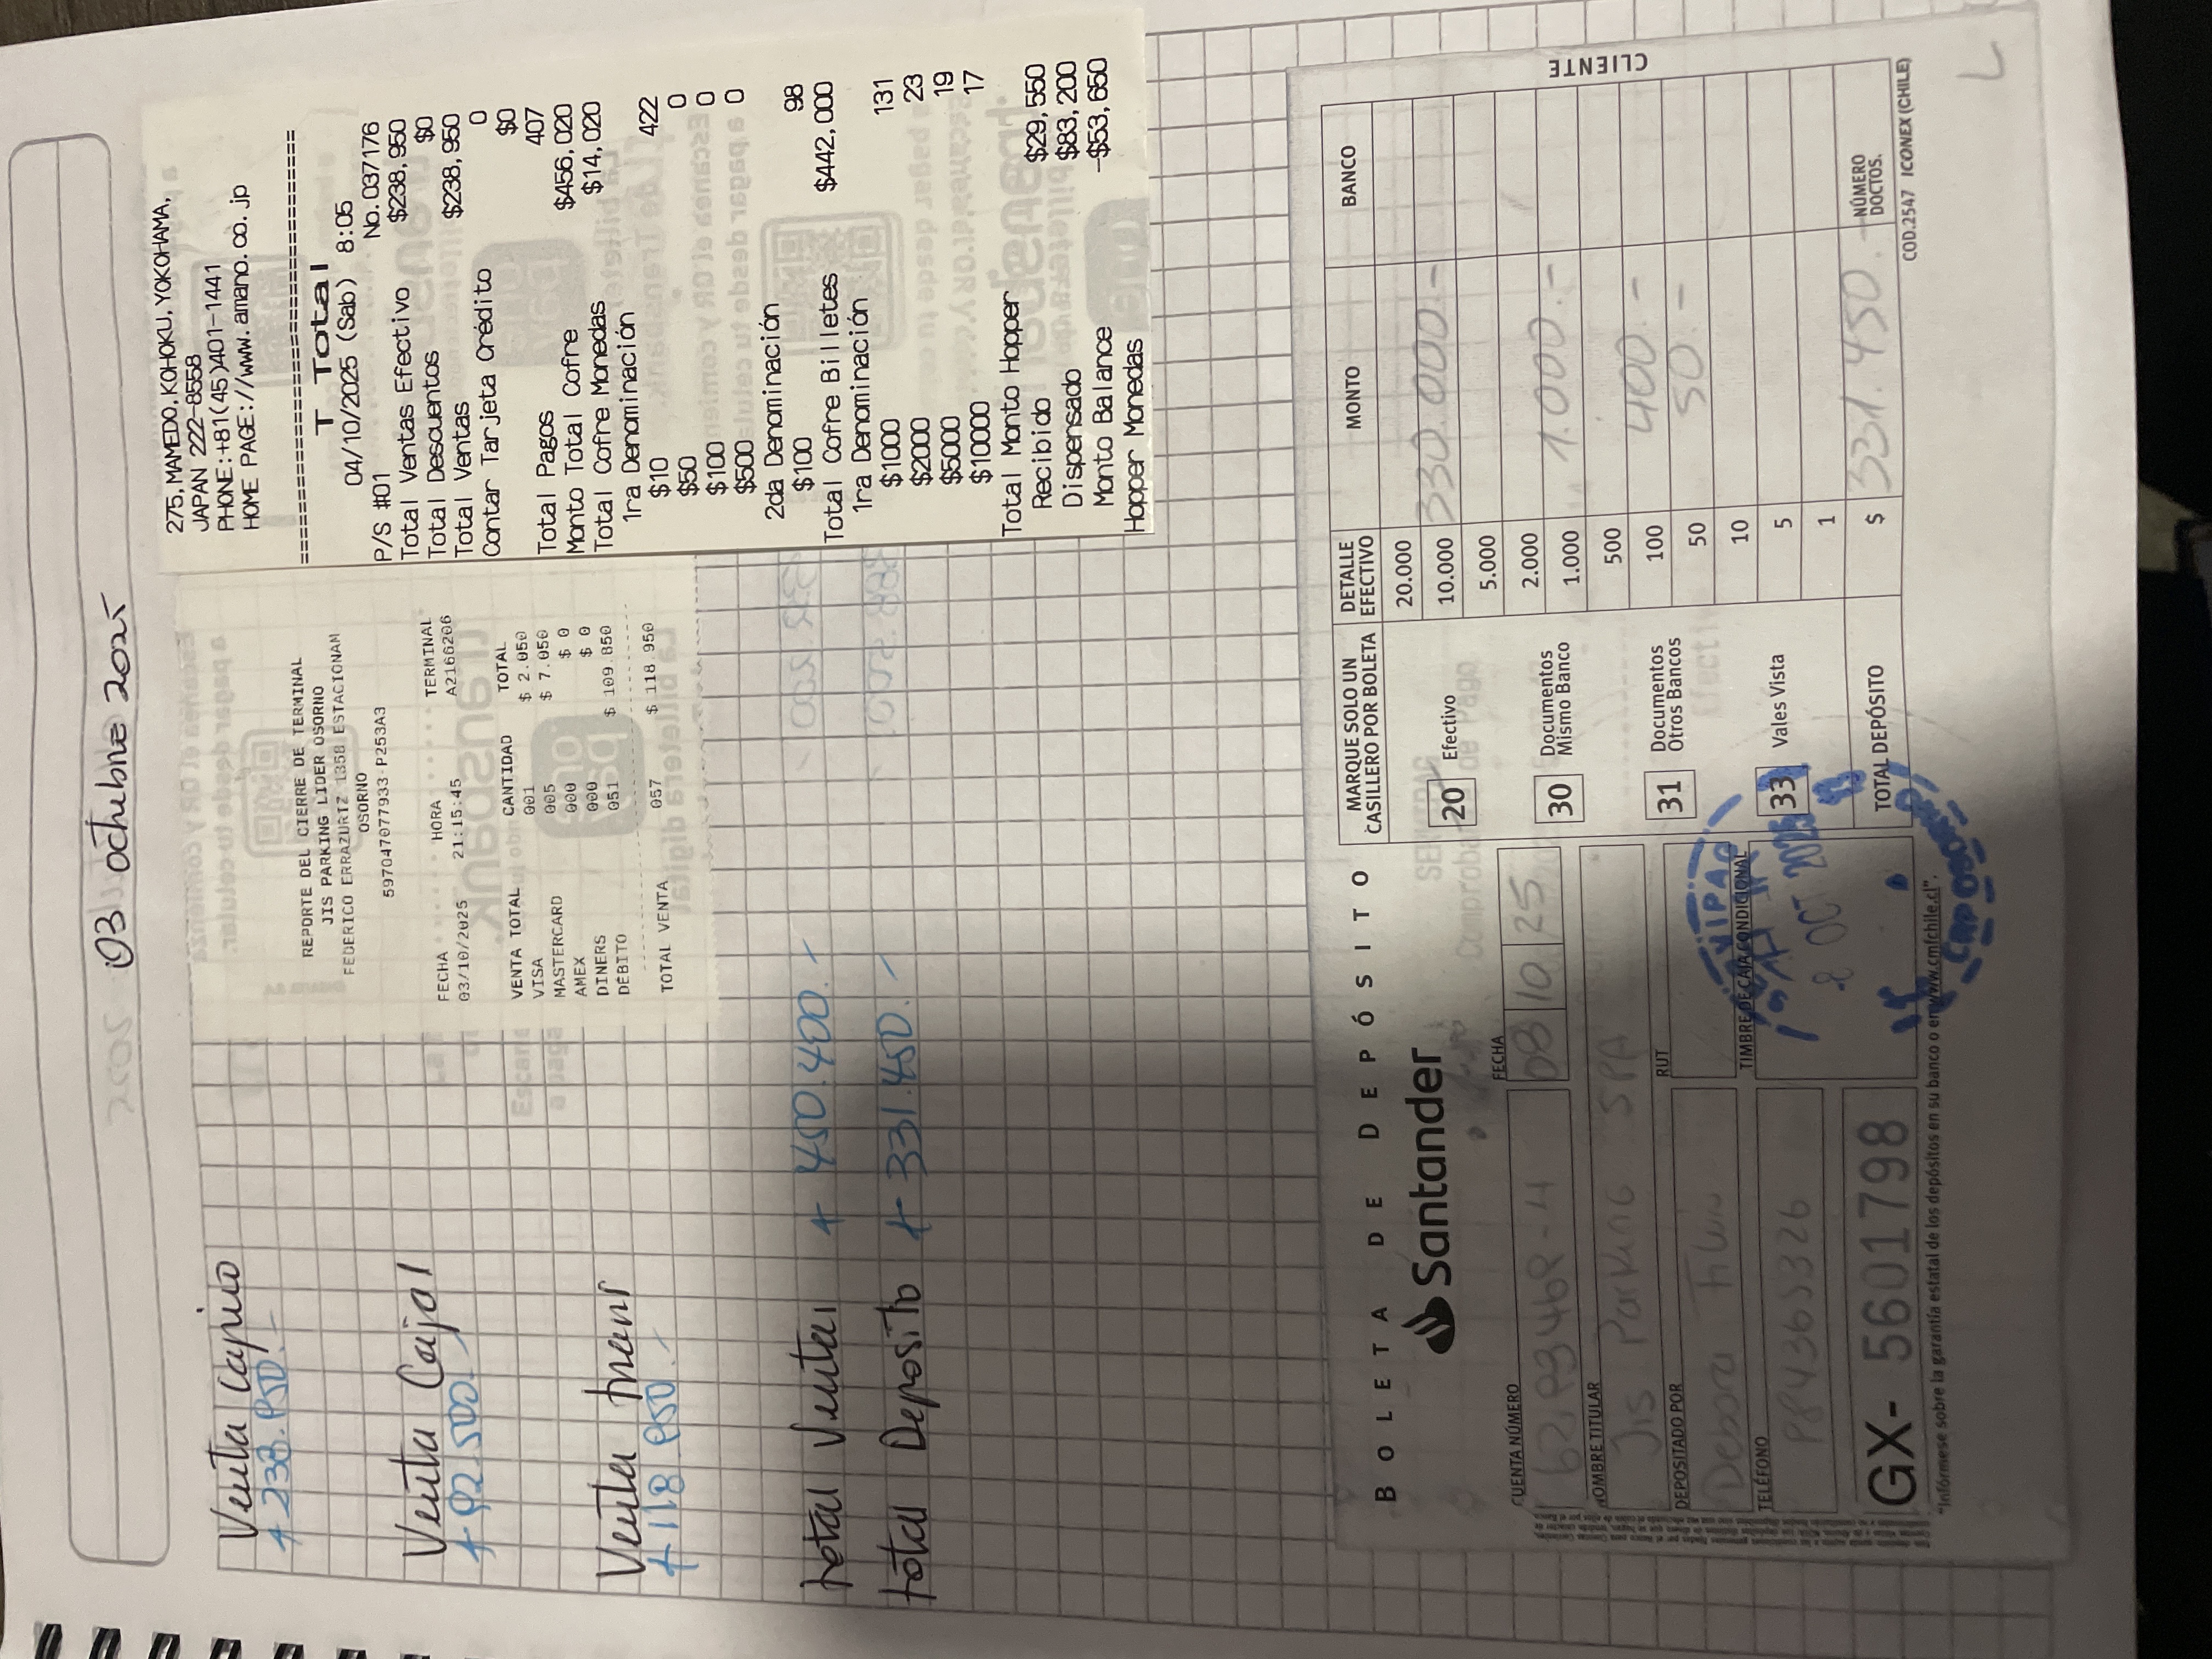 03 octubre 2025
Venta Cajero
+ 238.950.-
Venta Cajal
+ 92.500.-
Venta trans
+ 118.950.-
total Ventas + 450.400.-
total Deposito + 331.450.-
REPORTE DEL CIERRE DE TERMINAL
JIS PARKING LIDER OSORNO
FEDERICO ERRAZURTZ 1358 ESTACIONAM
OSORNO
597047077933-P253A3
FECHA HORA TERMINAL
03/10/2025 21:15:45 A2166206
VENTA TOTAL CANTIDAD TOTAL
VISA 001 $ 2.050
MASTERCARD 005 $ 7.050
AMEX 000 $ 0
DINERS 000 $ 0
DEBITO 051 $ 109.850
TOTAL VENTA 057 $ 118.950
275, MAMEDO, KOHOKU, YOKOHAMA,
JAPAN 222-8558
PHONE:+81(45)401-1441
HOME PAGE://www.amano.co.jp
==============================
T Total
04/10/2025 (Sab) 8:05
P/S #01 No.037176
Total Ventas Efectivo $238,950
Total Descuentos $0
Total Ventas $238,950
Contar Tarjeta Crédito 0
$0
Total Pagos 407
Monto Total Cofre $456,020
Total Cofre Monedas $14,020
1ra Denominación
$10 422
$50 0
$100 0
$500 0
2da Denominación
$100 98
Total Cofre Billetes $442,000
1ra Denominación
$1000 131
$2000 23
$5000 19
$10000 17
Total Monto Hopper
Recibido $29,550
Dispensado $83,200
Monto Balance -$53,650
Hopper Monedas
BOLETA DE DEPÓSITO
Santander
CUENTA NÚMERO
FECHA
08 10 25
NOMBRE TITULAR
Jis Parking SPA
DEPOSITADO POR
RUT
TELÉFONO
TIMBRE DE CAJA CONDICIONAL
GX- 5601798
"Infórmese sobre la garantía estatal de los depósitos en su banco o en www.cmfchile.cl".
MARQUE SOLO UN CASILLERO POR BOLETA
20 Efectivo
30 Documentos Mismo Banco
31 Documentos Otros Bancos
33 Vales Vista
TOTAL DEPÓSITO
DETALLE EFECTIVO MONTO BANCO
20.000
10.000 330.000.-
5.000
2.000
1.000 1.000.-
500
100 400.-
50 50.-
10
5
1
$ 331.450.- NÚMERO DOCTOS.
CLIENTE
COD.2547 ICONEX (CHILE)